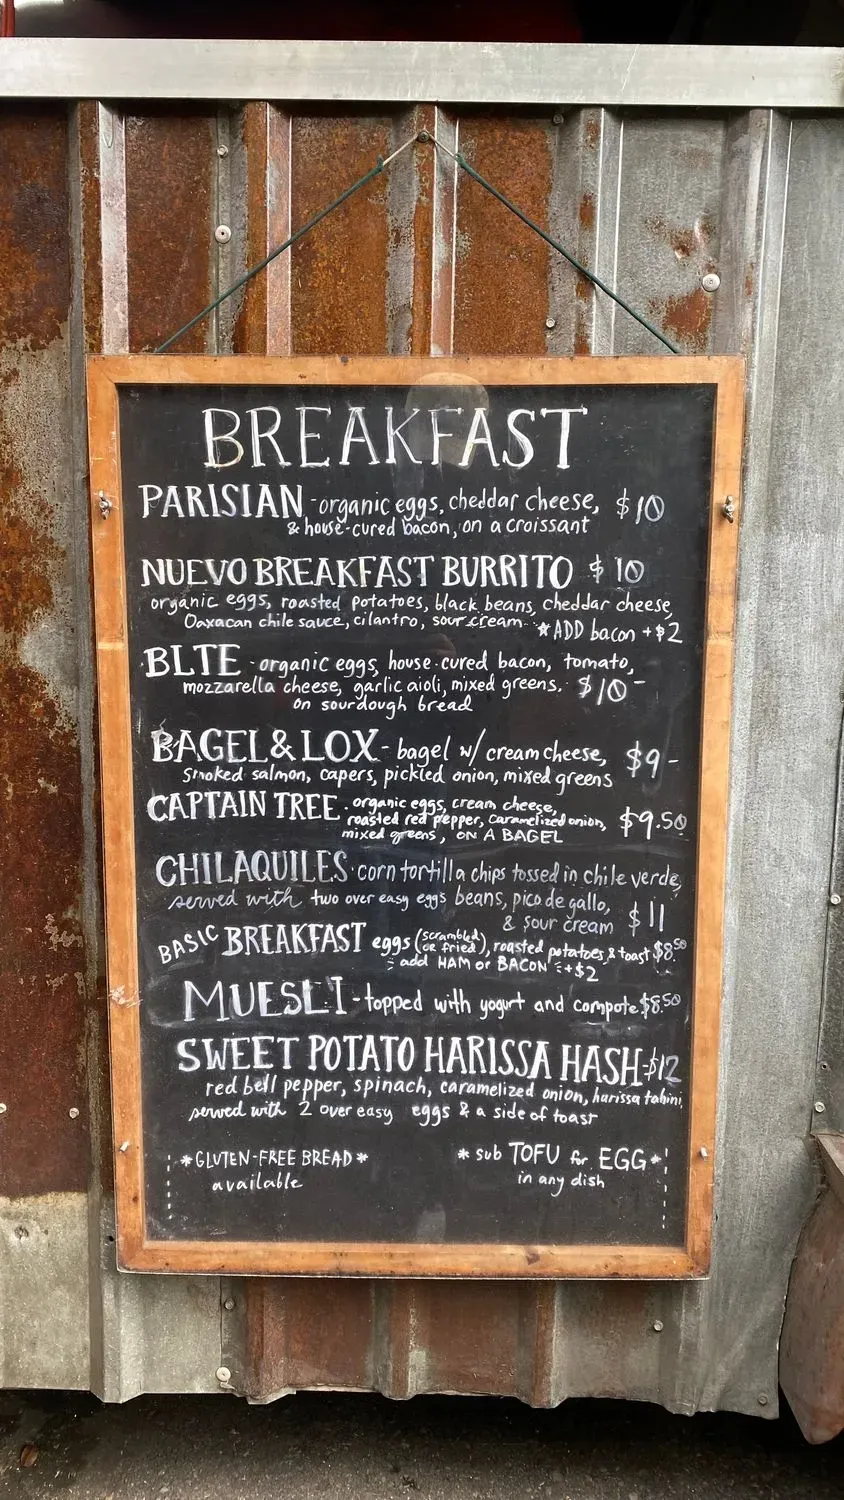 BREAKFAST
PARISIAN - organic eggs, cheddar cheese, $10
& house-cured bacon, on a croissant
NUEVO BREAKFAST BURRITO $10
organic eggs, roasted potatoes, black beans, cheddar cheese,
Oaxacan chile sauce, cilantro, sour cream
*ADD bacon +$2
BLTE - organic eggs, house-cured bacon, tomato,
mozzarella cheese, garlic aioli, mixed greens. $10-
on sourdough bread
BAGEL & LOX - bagel w/ cream cheese, $9-
smoked salmon, capers, pickled onion, mixed greens
CAPTAIN TREE - organic eggs, cream cheese,
roasted red pepper, caramelized onion, $9.50
mixed greens, ON A BAGEL
CHILAQUILES - corn tortilla chips tossed in chile verde,
served with two over easy eggs beans, pico de gallo,
& sour cream $11
BASIC BREAKFAST eggs (scrambled or fried), roasted potatoes & toast $8.50
add HAM or BACON +$2
MUESLI - topped with yogurt and compote $8.50
SWEET POTATO HARISSA HASH - $12
red bell pepper, spinach, caramelized onion, harissa tahini,
served with 2 over easy eggs & a side of toast
*GLUTEN-FREE BREAD*
available
*sub TOFU for EGG*
in any dish